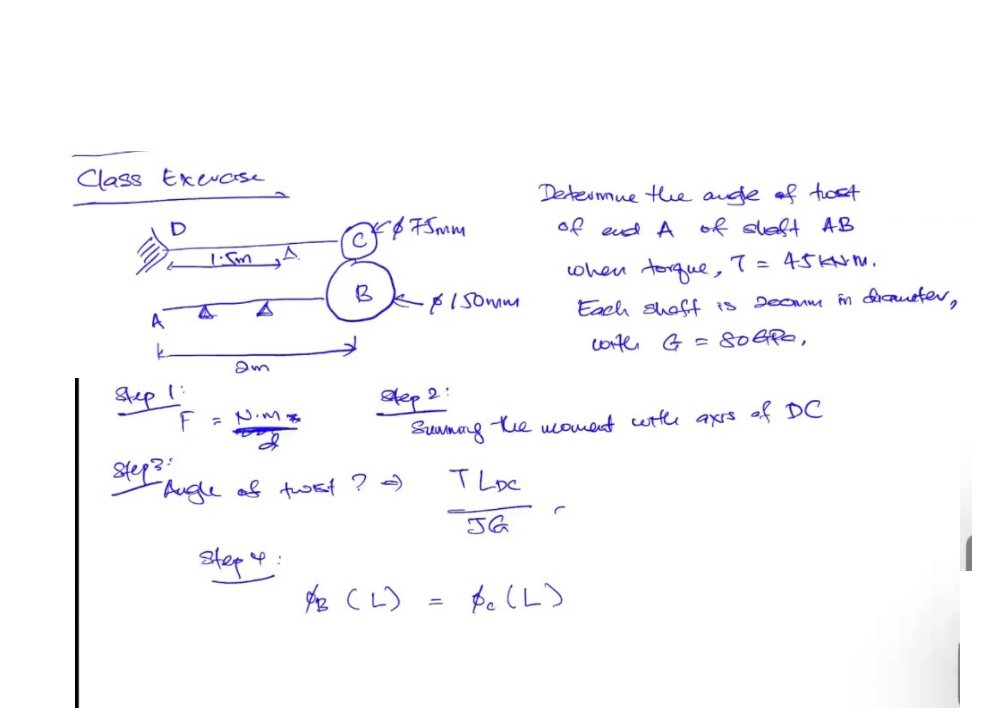 Class Exercise
D
C
φ75mm
1.5m
B
φ150mm
A
2m
Determine the angle of twist
of end A of shaft AB
when torque, T = 45kN.m.
Each shaft is 200mm in diameter,
with G = 80GPa.
Step 1:
F = N.m
d
Step 2:
Summing the moment with axis of DC
Step3:
Angle of twist ? ⇒ TLDC
JG
Step 4:
φB (L) = φc (L)